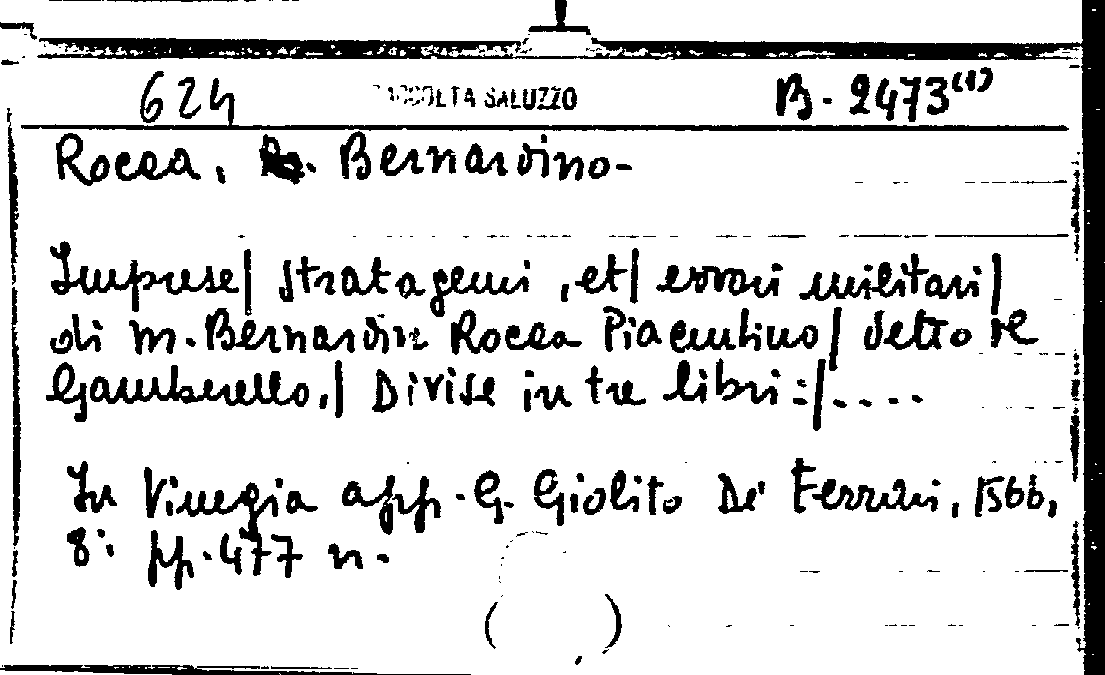 624 RACCOLTA SALUZZO B. 2473(1)
Rocca, Bernardino-
Imprese/ stratagemi, et/ errori militari/
di m. Bernardin Rocca Piacentino/ detto il
Gamberello,/ Divise in tre libri:/....
In Vinegia app. G. Giolito De' Ferrari, 1566,
8°. pp. 477 n.
( )